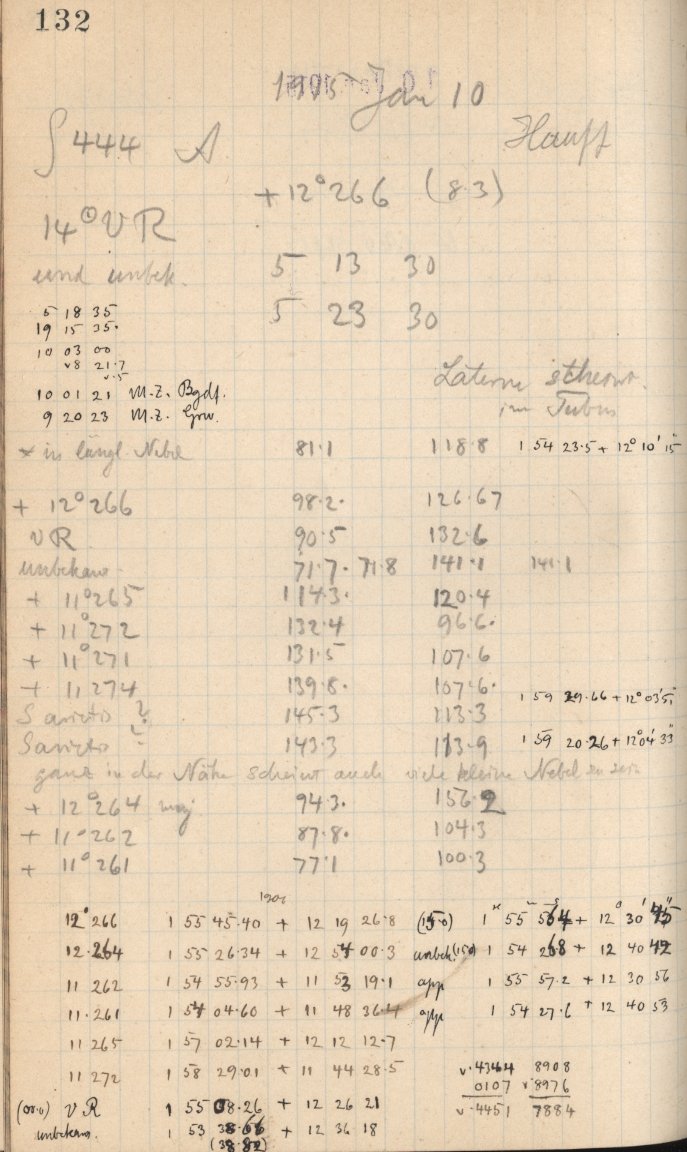 132
1905 Jan 10
444 A Hauff
+12°266 (8.3)
14° VR
und unbek. 5 13 30
5 23 30
5 18 35
19 15 35.
10 03 00
v8 21.7
v.5
10 01 21 M.Z. Bgdf.
9 20 23 M.Z. Grw.
Laterne
im Tubus
* in längl. Nebel 81.1 118.8 1 54 23.5 + 12° 10' 15"
+ 12°266 98.2. 126.67
VR 90.5 132.6
71.7. 71.8 141.1 141.1
+ 11°265 114.3. 120.4
+ 11°272 132.4 96.6.
+ 11°271 131.5 107.6
+ 11 274 139.8. 107.6. 1 59 29.66 + 12° 03' 51"
S arietis ? 145.3 113.3
S arietis ? 143.3 113.9 1 59 20.26 + 12° 04' 33"
ganz in der Nähe scheint auch viele kleine Nebel zu sein
+ 12°264 94.3. 156.2
+ 11°262 87.8. 104.3
+ 11°261 77.1 100.3
1900
12° 266 1 55 45.40 + 12 19 26.8 (15.0) 1 55 + 12° 30'
12.264 1 55 26.34 + 12 54 00.3 unbek. 1 54 + 12 40 42
11 262 1 54 55.93 + 11 53 19.1 app 1 55 57.2 + 12 30 56
11.261 1 54 04.60 + 11 48 36.4 app 1 54 27.6 + 12 40 53
11 265 1 57 02.14 + 12 12 12.7
11 272 1 58 29.01 + 11 44 28.5
v.4344 8908
0107 v.8976
v.4451 7884
VR 1 55 08.26 + 12 26 21
1 53 + 12 36 18
(38.82)